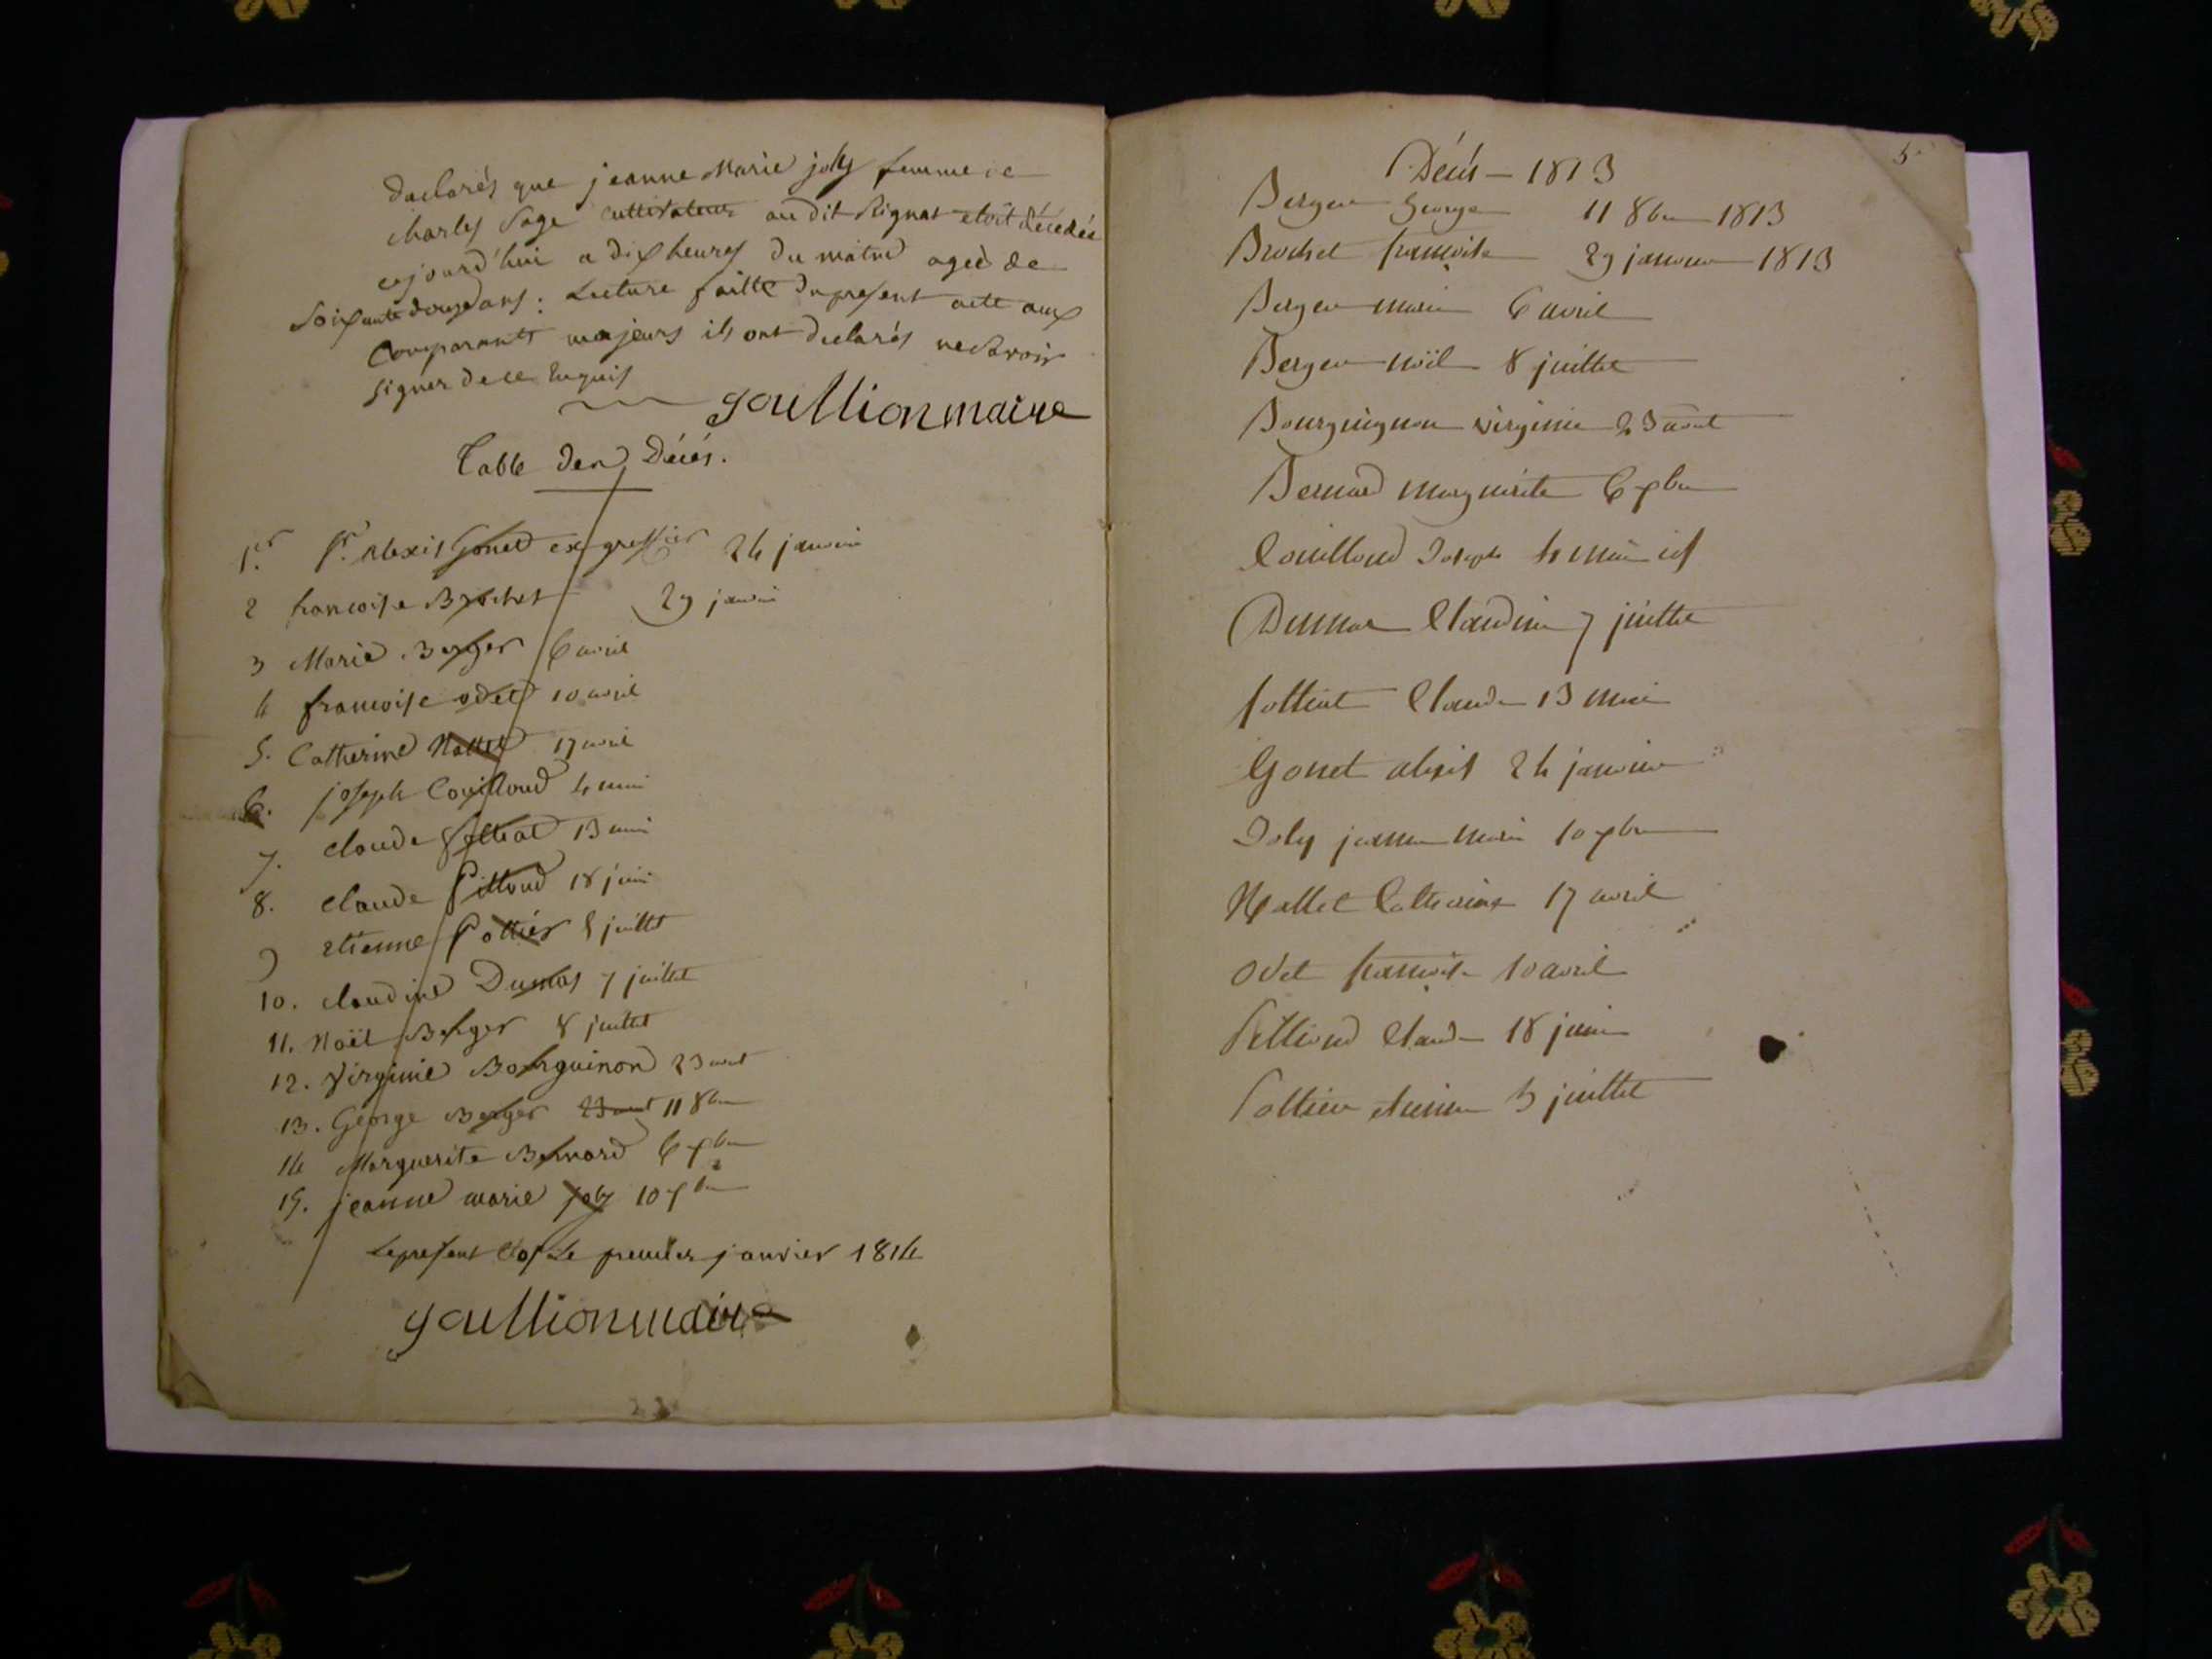 declarés que jeanne Marie joly femme de
charles Sage cultivateur au dit Rignat etoit décedée
cejourd'hui a dix heures du matin ageé de
Soixante douze ans : Lecture faitte du present acte aux
Comparants majeurs ils ont declarés ne Savoir
signer de ce Enquis
gaullion maire
Table des Décés.
1.er f. alexis Gonet ex greffier 24 janvier
2 francoise Brochet 29 janvier
3 Marie Berger 6 avril
4 francoise odet 10 avril
5. Catherine Nallet 17 avril
6. joseph Couilloud 4 mai
7. claude folliat 13 mai
8. claude Pilloud 18 juin
9 etienne Pottier 5 juillet
10. claudine Dumas 7 juillet
11. Noël Berger 8 juillet
12. Virginie Bourguinon 23 aout
13. George Berger 23 aout 11 8bre
14 Marguerite Bernard 6 xbre
15. jeanne marie joly 10 xbre
Le present Clos Le premier janvier 1814
gaullion maire
5.
Décés — 1813
Berger George 11 8bre 1813
Brochet francoise 29 janvier 1813
Berger marie 6 avril
Berger noël 8 juillet
Bourguignon virginie 23 aout
Bernard marguerite 6 xbre
Couilloud Joseph 4 mai
Dumas Claudine 7 juillet
folliat Claude 13 mai
Gonet alexis 24 janvier
Joly jeanne marie 10 xbre
Nallet Catherine 17 avril
Odet francoise 10 avril
Pilloud Claude 18 juin
Pottier etienne 5 juillet